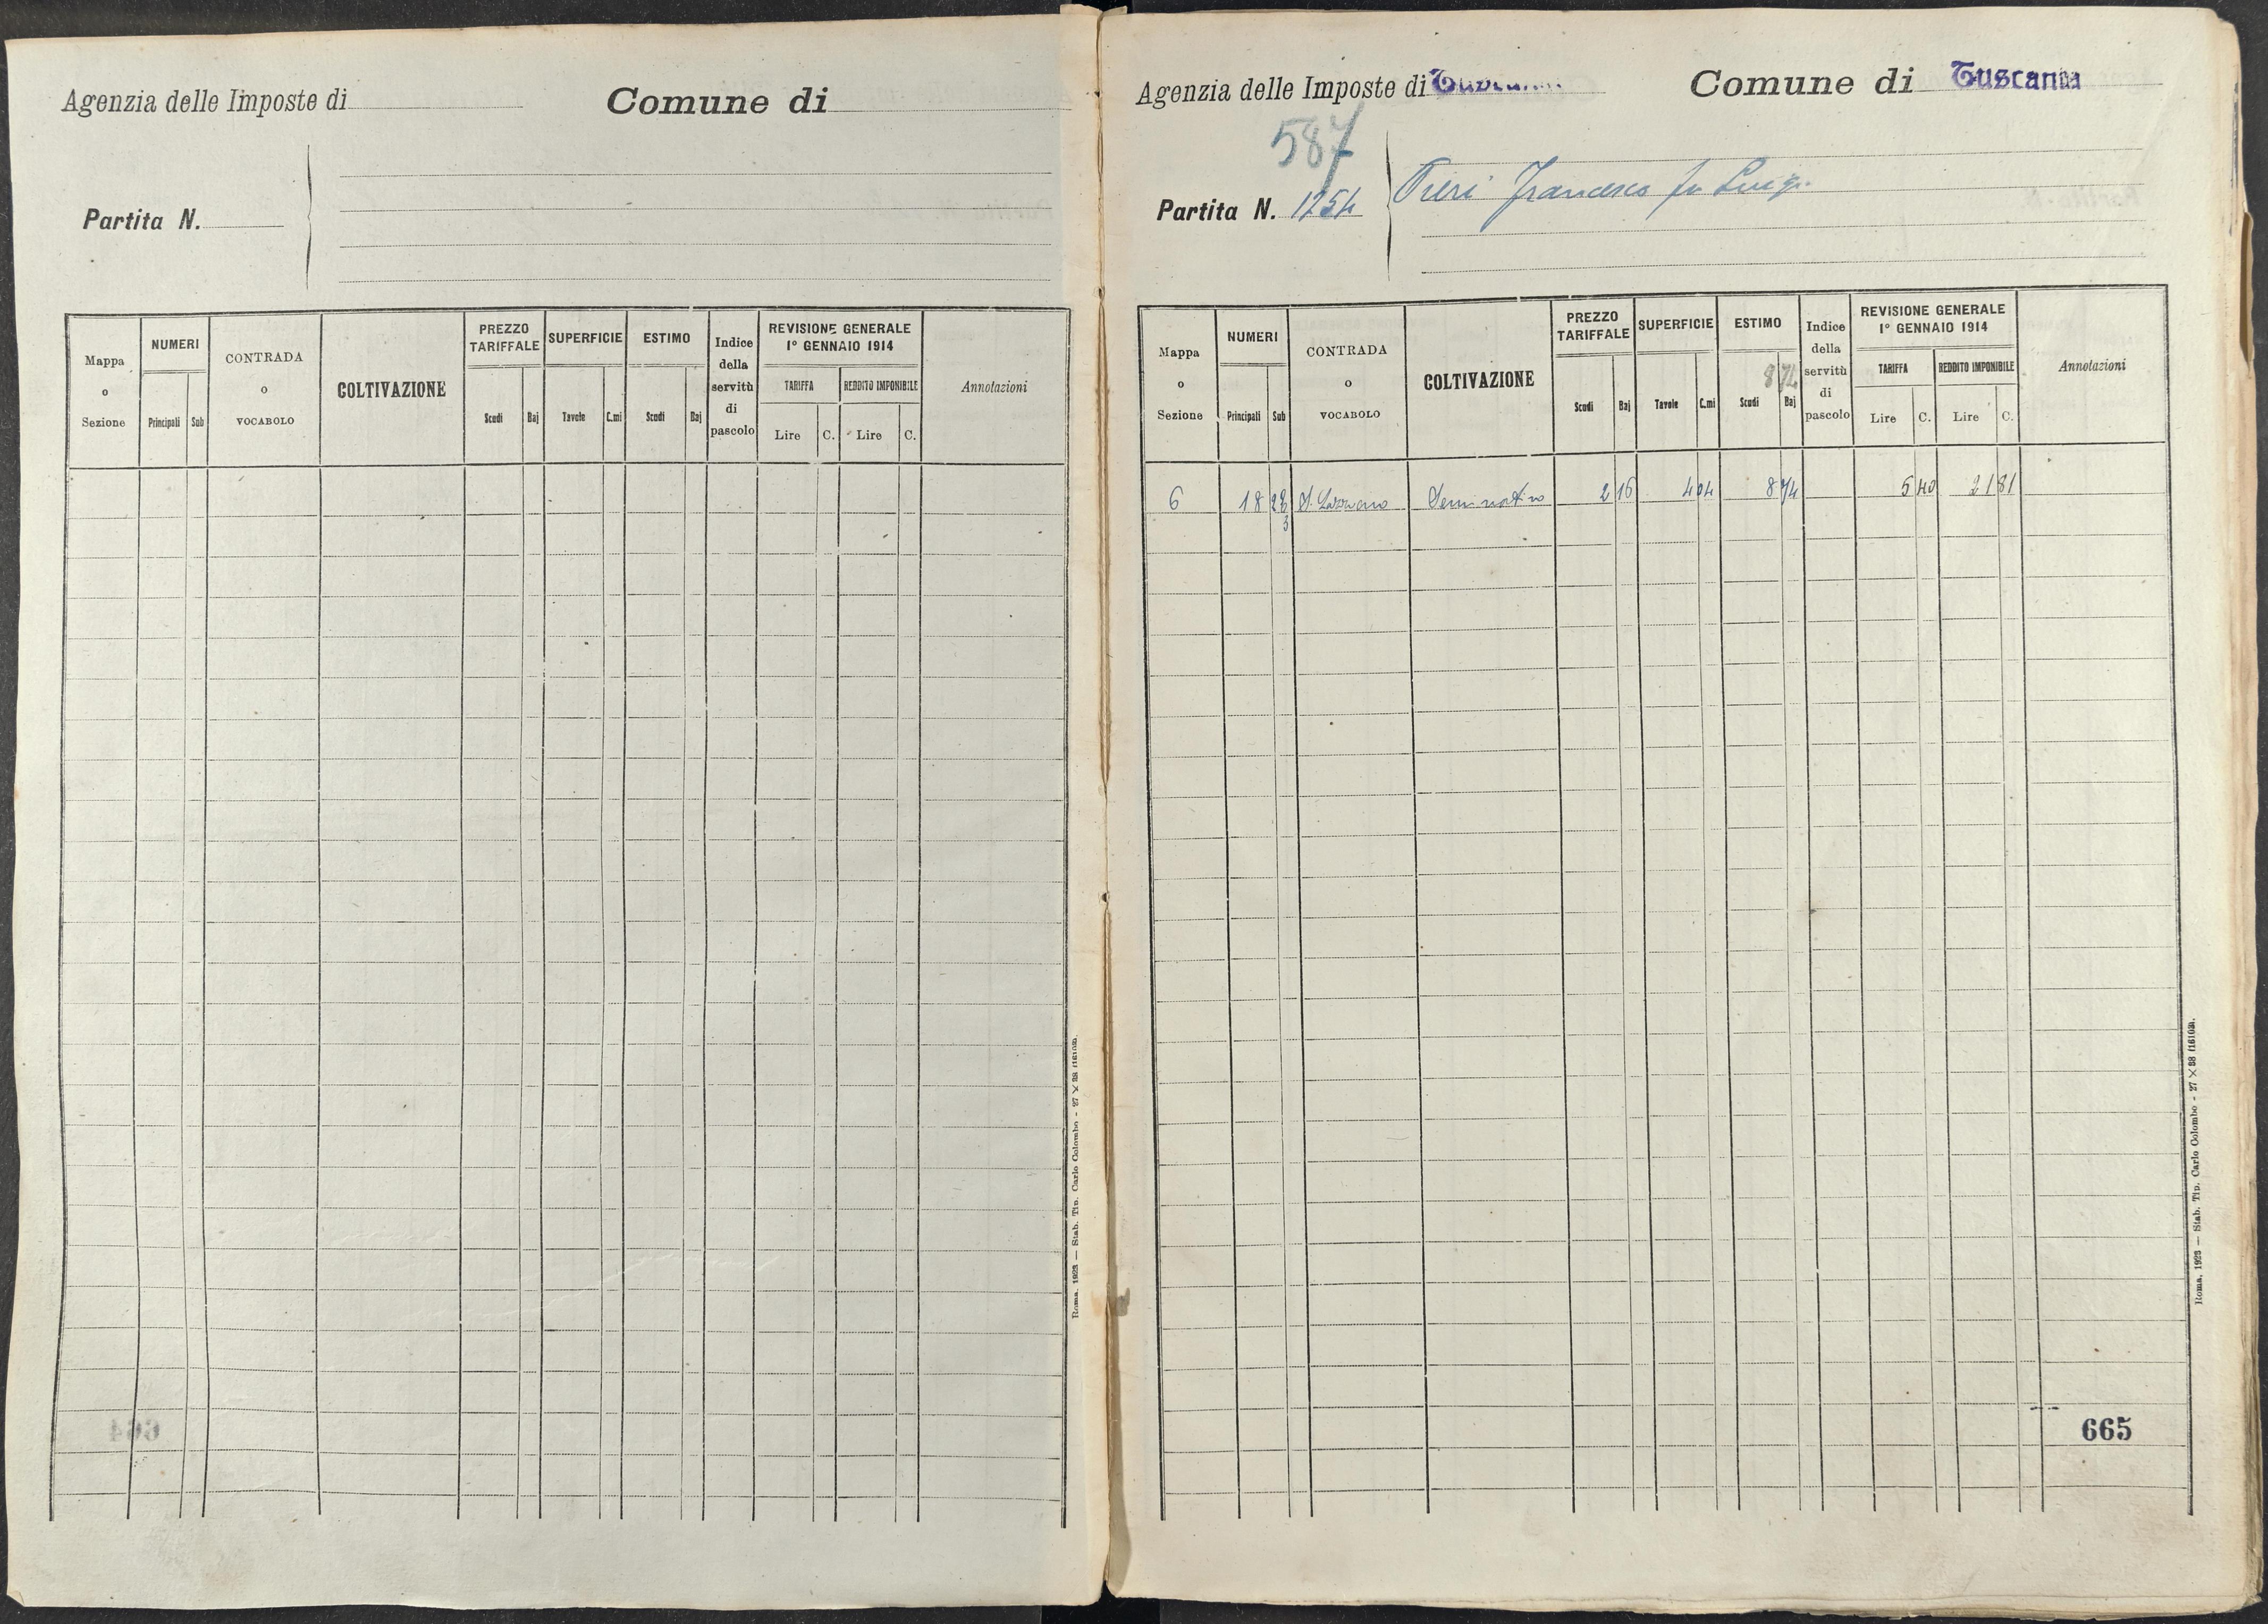 Agenzia delle Imposte di
Comune di
Partita N.
Mappa o Sezione
NUMERI
Principali Sub
CONTRADA o VOCABOLO
COLTIVAZIONE
PREZZO TARIFFALE
Scudi Baj
SUPERFICIE
Tavole C.mi
ESTIMO
Scudi Baj
Indice della servitù di pascolo
REVISIONE GENERALE
1° GENNAIO 1914
TARIFFA
Lire C.
REDDITO IMPONIBILE
Lire C.
Annotazioni
664
Roma, 1923 — Stab. Tip. Carlo Colombo - 27 × 38 (1610).
Agenzia delle Imposte di Tuscania
Comune di Tuscania
587
Partita N. 1254
Pieri Francesco fu Luigi
Mappa o Sezione
NUMERI
Principali Sub
CONTRADA o VOCABOLO
COLTIVAZIONE
PREZZO TARIFFALE
Scudi Baj
SUPERFICIE
Tavole C.mi
ESTIMO
8 74
Scudi Baj
Indice della servitù di pascolo
REVISIONE GENERALE
1° GENNAIO 1914
TARIFFA
Lire C.
REDDITO IMPONIBILE
Lire C.
Annotazioni
6 18 Seminativo 2 16 4 04 8 74 5 40 21 81
3
665
Roma, 1923 — Stab. Tip. Carlo Colombo - 27 × 38 (1610).